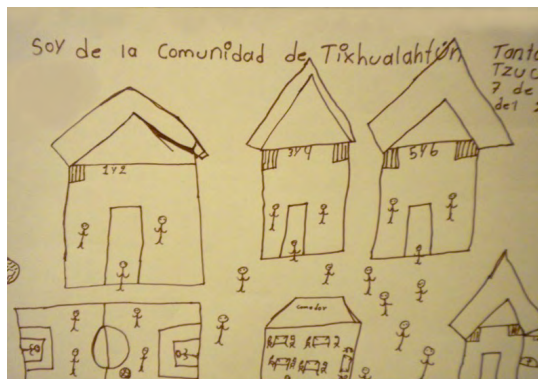 Soy de la Comunidad de Tixhualahtún
Tzuc
7 de
del
1 y 2
3 y 4
5 y 6
comedor